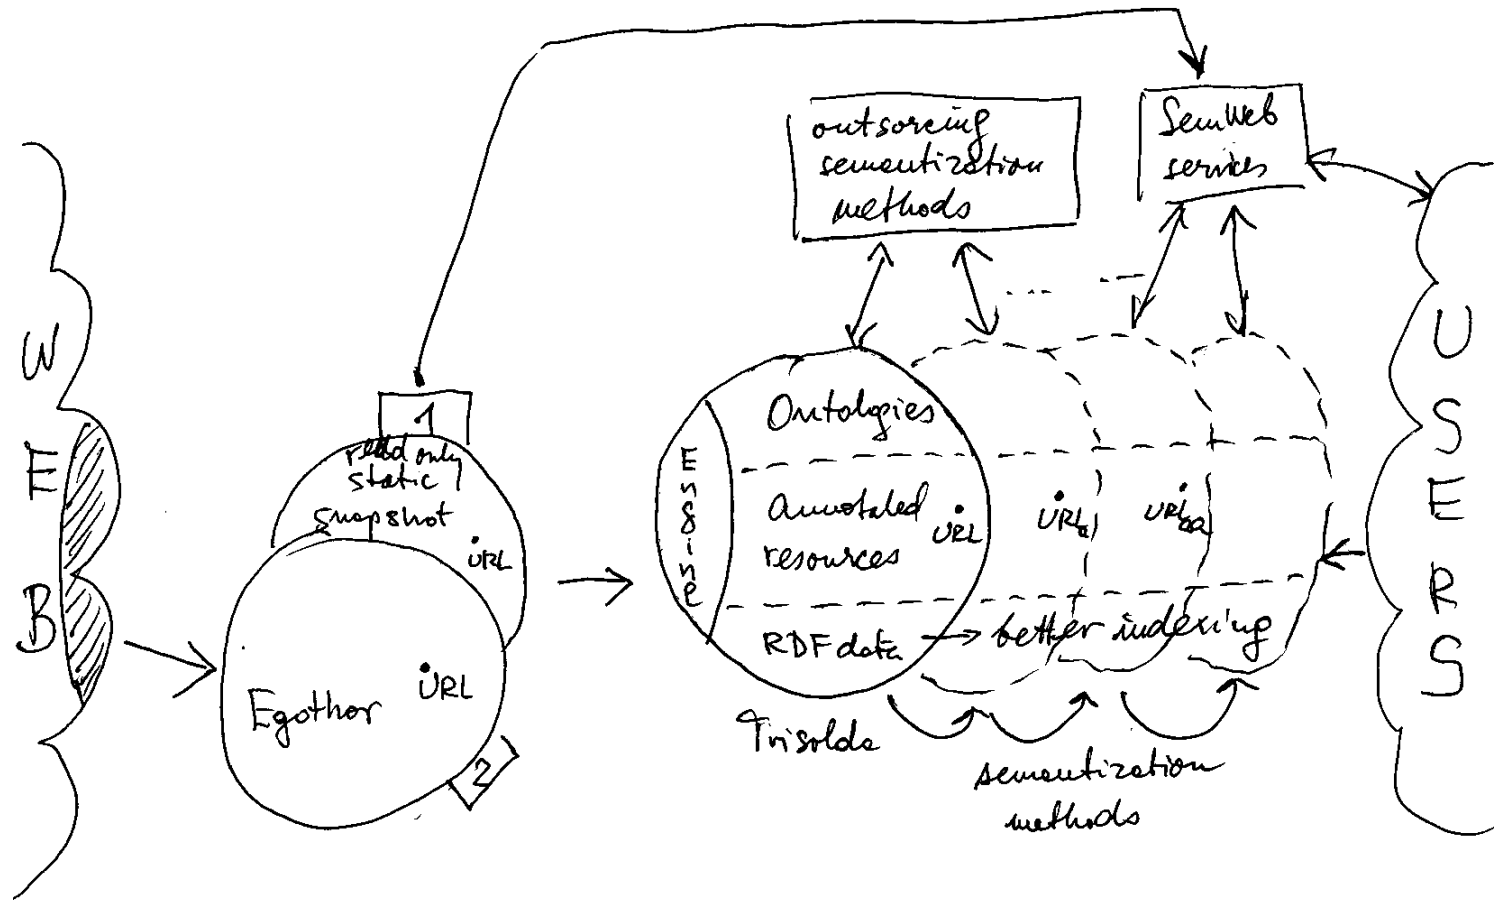 WEB
1
read only
static
snapshot
URL
Egothor
URL
2
outsorcing
semantization
methods
SemWeb
services
Engine
Ontologies
Annotated
resources
URL
URLa
URLaa
RDF data → better indexing
Trisolda
semantization
methods
USERS